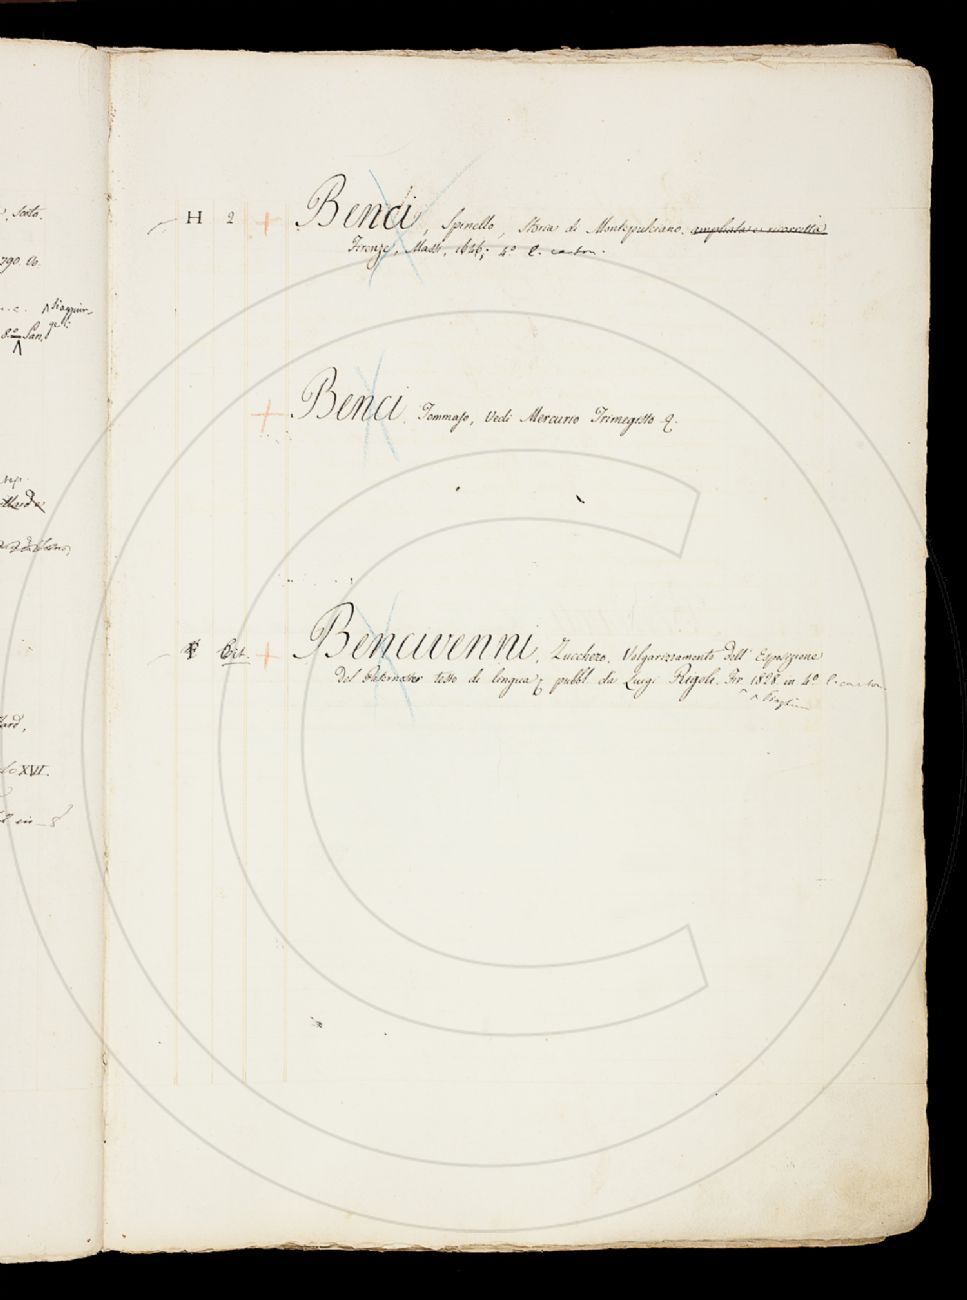 , Scoto.
790. 8o.
Si aggiun-
ge:
8.o San.
Zard,
XVI.
H 2 + Benci, Spinello, Storia di Montepulciano. ampliata e ricorretta
Firenze, Massi, 1646; 4.o l. carton.
+ Benci, Tommaso, Vedi Mercurio Trimegisto &.
Cit. + Bencivenni, Zucchero. Volgarizzamento dell' Esposizione
del Paternoster testo di lingua pubbl. da Luigi Rigoli. Fir. 1828 in 4.o l. carton
^ Piazzini